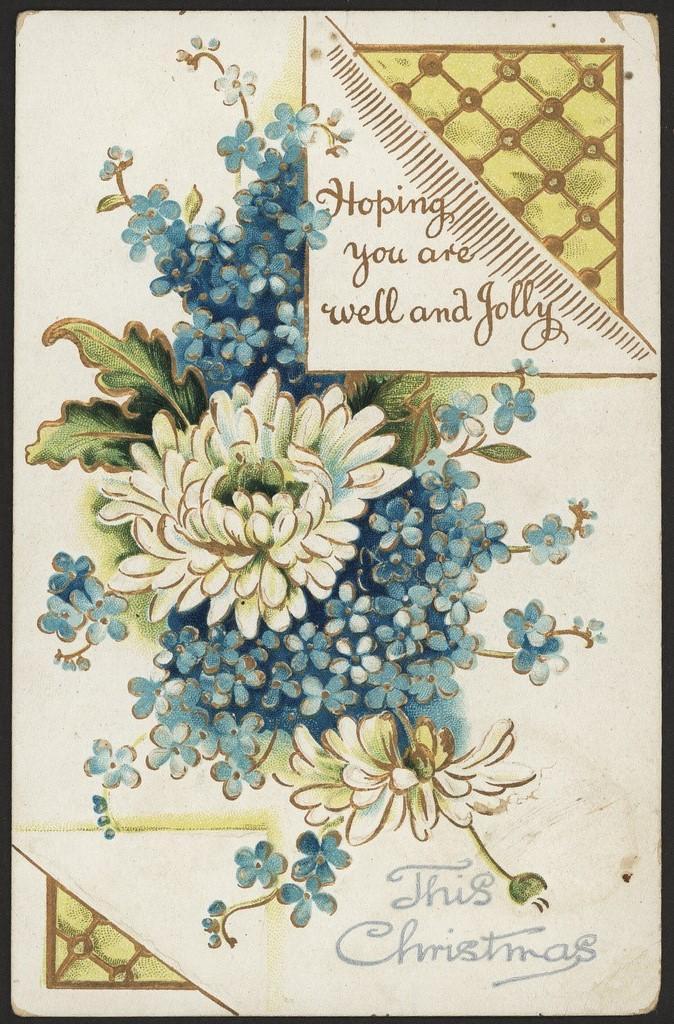 Hoping
you are
well and Jolly
This
Christmas